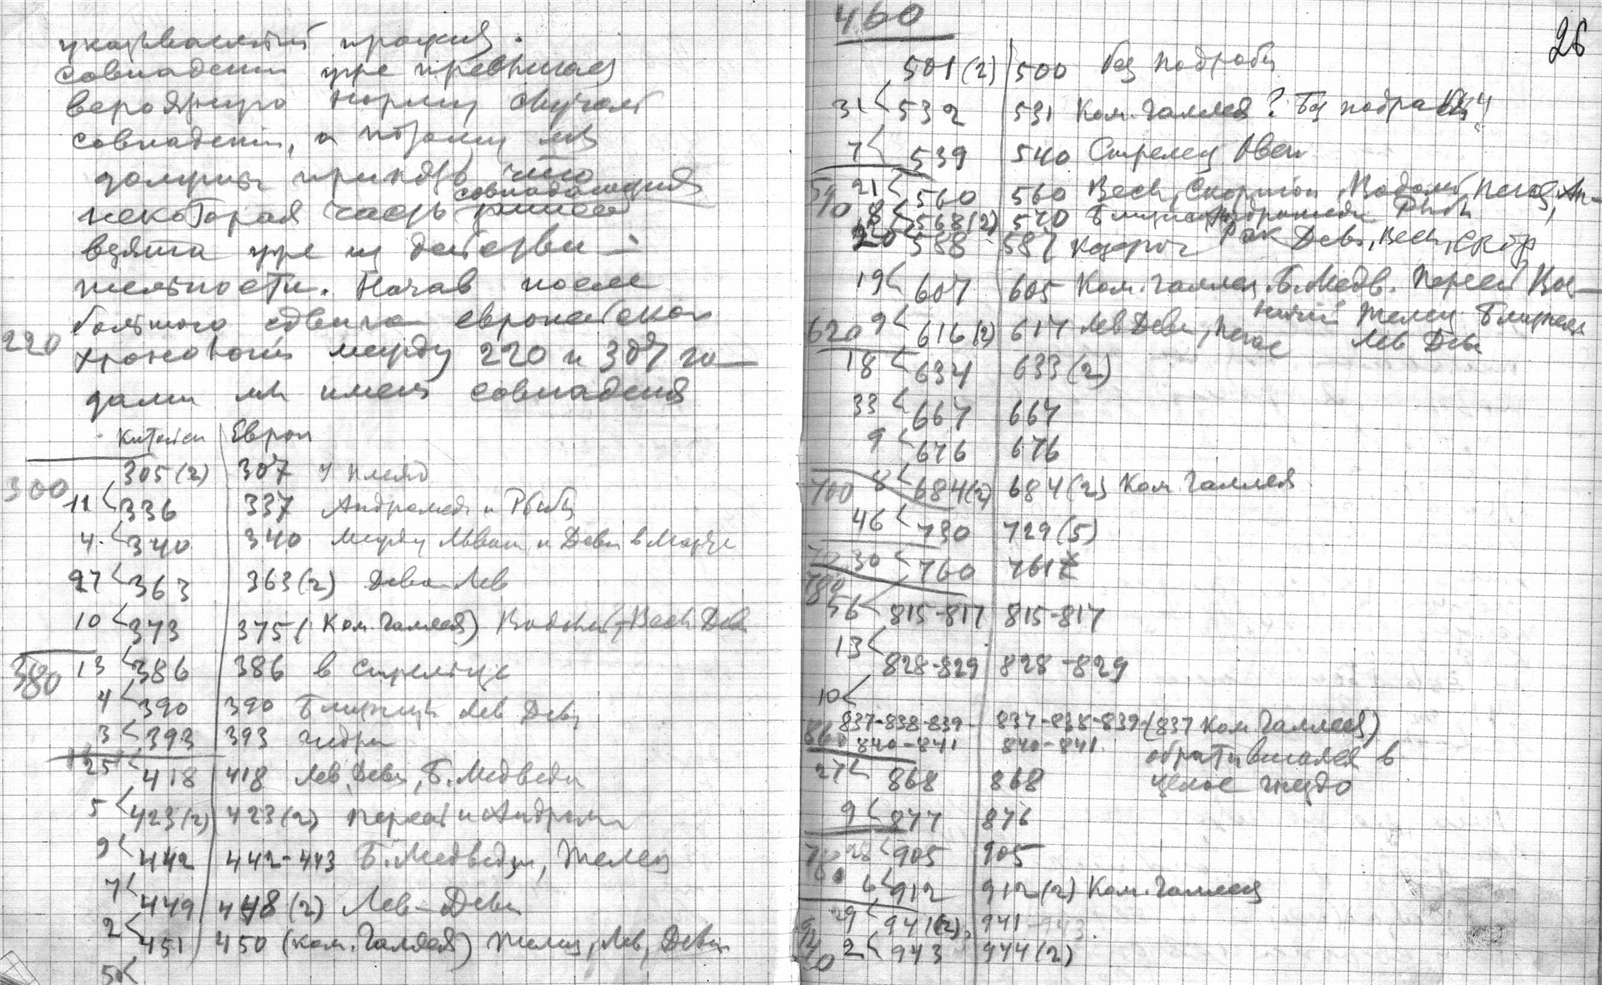 совпадений уже превышает
вероятную норму случает
совпадений, и потому мы
должны принять что
совпадающия
некоторая часть
взята уже из действи–
тельности. Начав после
большого сдвига европейской
220 хронологии между 220 и 307 го–
дами мы имеем совпадения
Китайск Европ
300 305(2) 307 у плеяд
336 337 Андромеды и Рыбы
4 < 340 340 между Львом и Девы в Марте
27 < 363 363(2) Дева–Лев
10 < 373 375 (Ком. Галлея) Водолей, – Весы Дева
380 13 < 386 386 в стрельце
4 < 390 390 Близнецы Лев Девы
3 < 393 393 гидры
25 < 418 418 Лев, Девы, Б. Медведи
5 < 423(2) 423(2) Персей и Андром
9 < 442 442–443 Б. Медведи, Телец
7 < 449 448(2) Лев–Девы
2 < 451 450 (ком. Галлея) Телец, Лев, Девы
5 <
460
26
501(2) 500 без подробн
31 < 532 531 Ком. Галлея?
7 < 539 540 Стрелец Овен
21 < 560 560 Весы, Скорпион, Водолей, Пегас, Ан–
8 < 568(2) 570 Близнецы Андромеды Рыбы
20 < 588 587 Рак Девы, Весы, Скор
19 < 607 605 Ком. Галлея, Б. Медв. Персей Воз–
ничий Телец Близнецы
620 9 < 616(2) 617 Лев Девы, Пегас Лев Девы
18 < 634 633(2)
33 < 667 667
9 < 676 676
700 8 < 684(2) 684(2) Ком. Галлея
46 < 730 729(5)
30 < 760 761
780
56 < 815-817 815-817
13 <
828-829 828-829
10 <
837-838-839- 837-838-839- (837 Ком. Галлея)
840-841 840-841 обратившаяся в
27 < 868 868 целое гнездо
9 < 877 876
28 < 905 905
6 < 912 912(2) Ком. Галлея
29 < 941(2) 941
2 < 943 944(2)